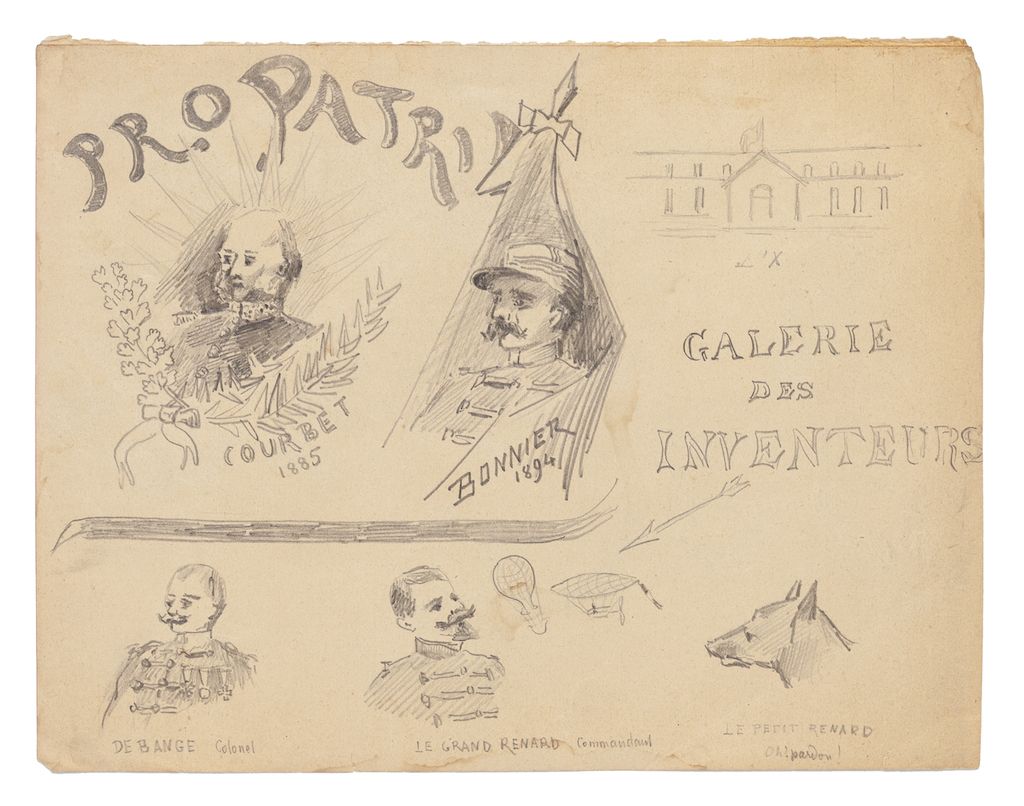 PRO.PATRIA
COURBET
1885
BONNIER
1894
L'X
GALERIE
DES
INVENTEURS
DE BANGE Colonel
LE GRAND RENARD Commandant
LE PETIT RENARD
Oh! pardon!